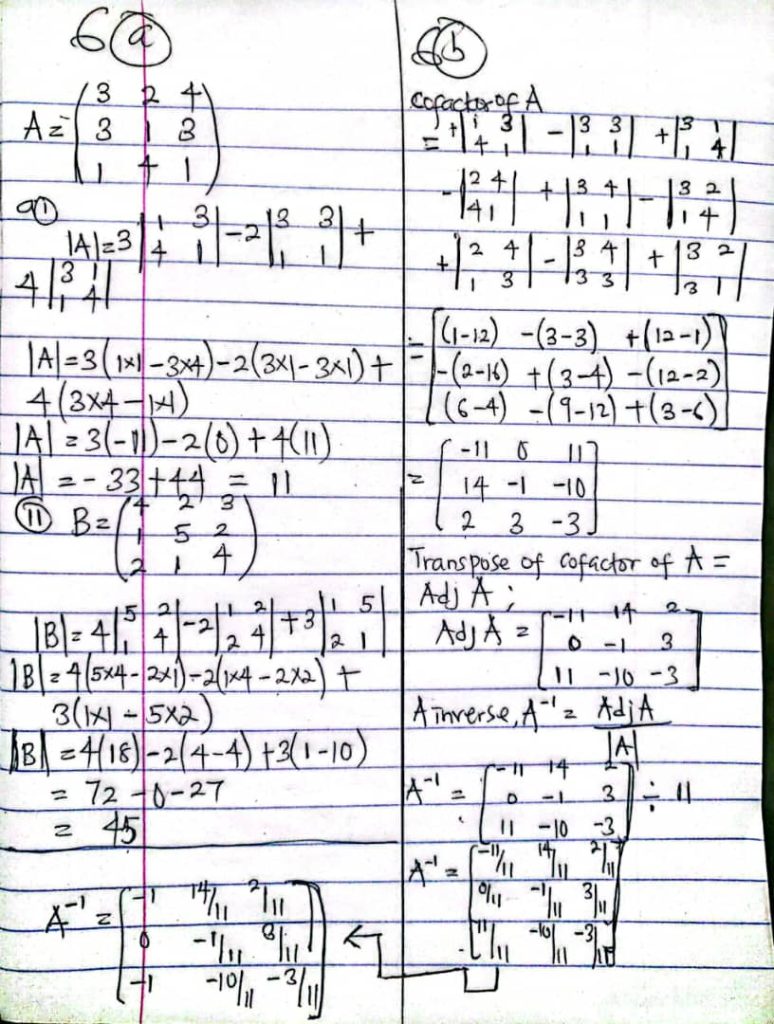 6 (a)
A = (3 2 4
3 1 3
1 4 1)
a(i)
|A| = 3 |1 3 4 1| - 2 |3 3 1 1| +
4 |3 1 1 4|
|A| = 3(1×1 - 3×4) - 2(3×1 - 3×1) +
4(3×4 - 1×1)
|A| = 3(-11) - 2(0) + 4(11)
|A| = -33 + 44 = 11
(ii) B = (4 2 3
1 5 2
2 1 4)
|B| = 4 |5 2 1 4| - 2 |1 2 2 4| + 3 |1 5 2 1|
|B| = 4(5×4 - 2×1) - 2(1×4 - 2×2) +
3(1×1 - 5×2)
|B| = 4(18) - 2(4-4) + 3(1-10)
= 72 - 0 - 27
= 45
A⁻¹ = [-1 14/11 2/11
0 -1/11 8/11
-1 -10/11 -3/11]
6 (b)
Cofactor of A
= +|1 3 4 1| - |3 3 1 1| + |3 1 1 4|
- |2 4 4 1| + |3 4 1 1| - |3 2 1 4|
+ |2 4 1 3| - |3 4 3 3| + |3 2 3 1|
= [(1-12) -(3-3) +(12-1)
-(2-16) +(3-4) -(12-2)
(6-4) -(9-12) +(3-6)]
= [-11 0 11
14 -1 -10
2 3 -3]
Transpose of cofactor of A =
Adj A ;
Adj A = [-11 14 2
0 -1 3
11 -10 -3]
A inverse, A⁻¹ = Adj A
|A|
A⁻¹ = [-11 14 2
0 -1 3
11 -10 -3] ÷ 11
A⁻¹ = [-11/11 14/11 2/11
0/11 -1/11 3/11
11/11 -10/11 -3/11]